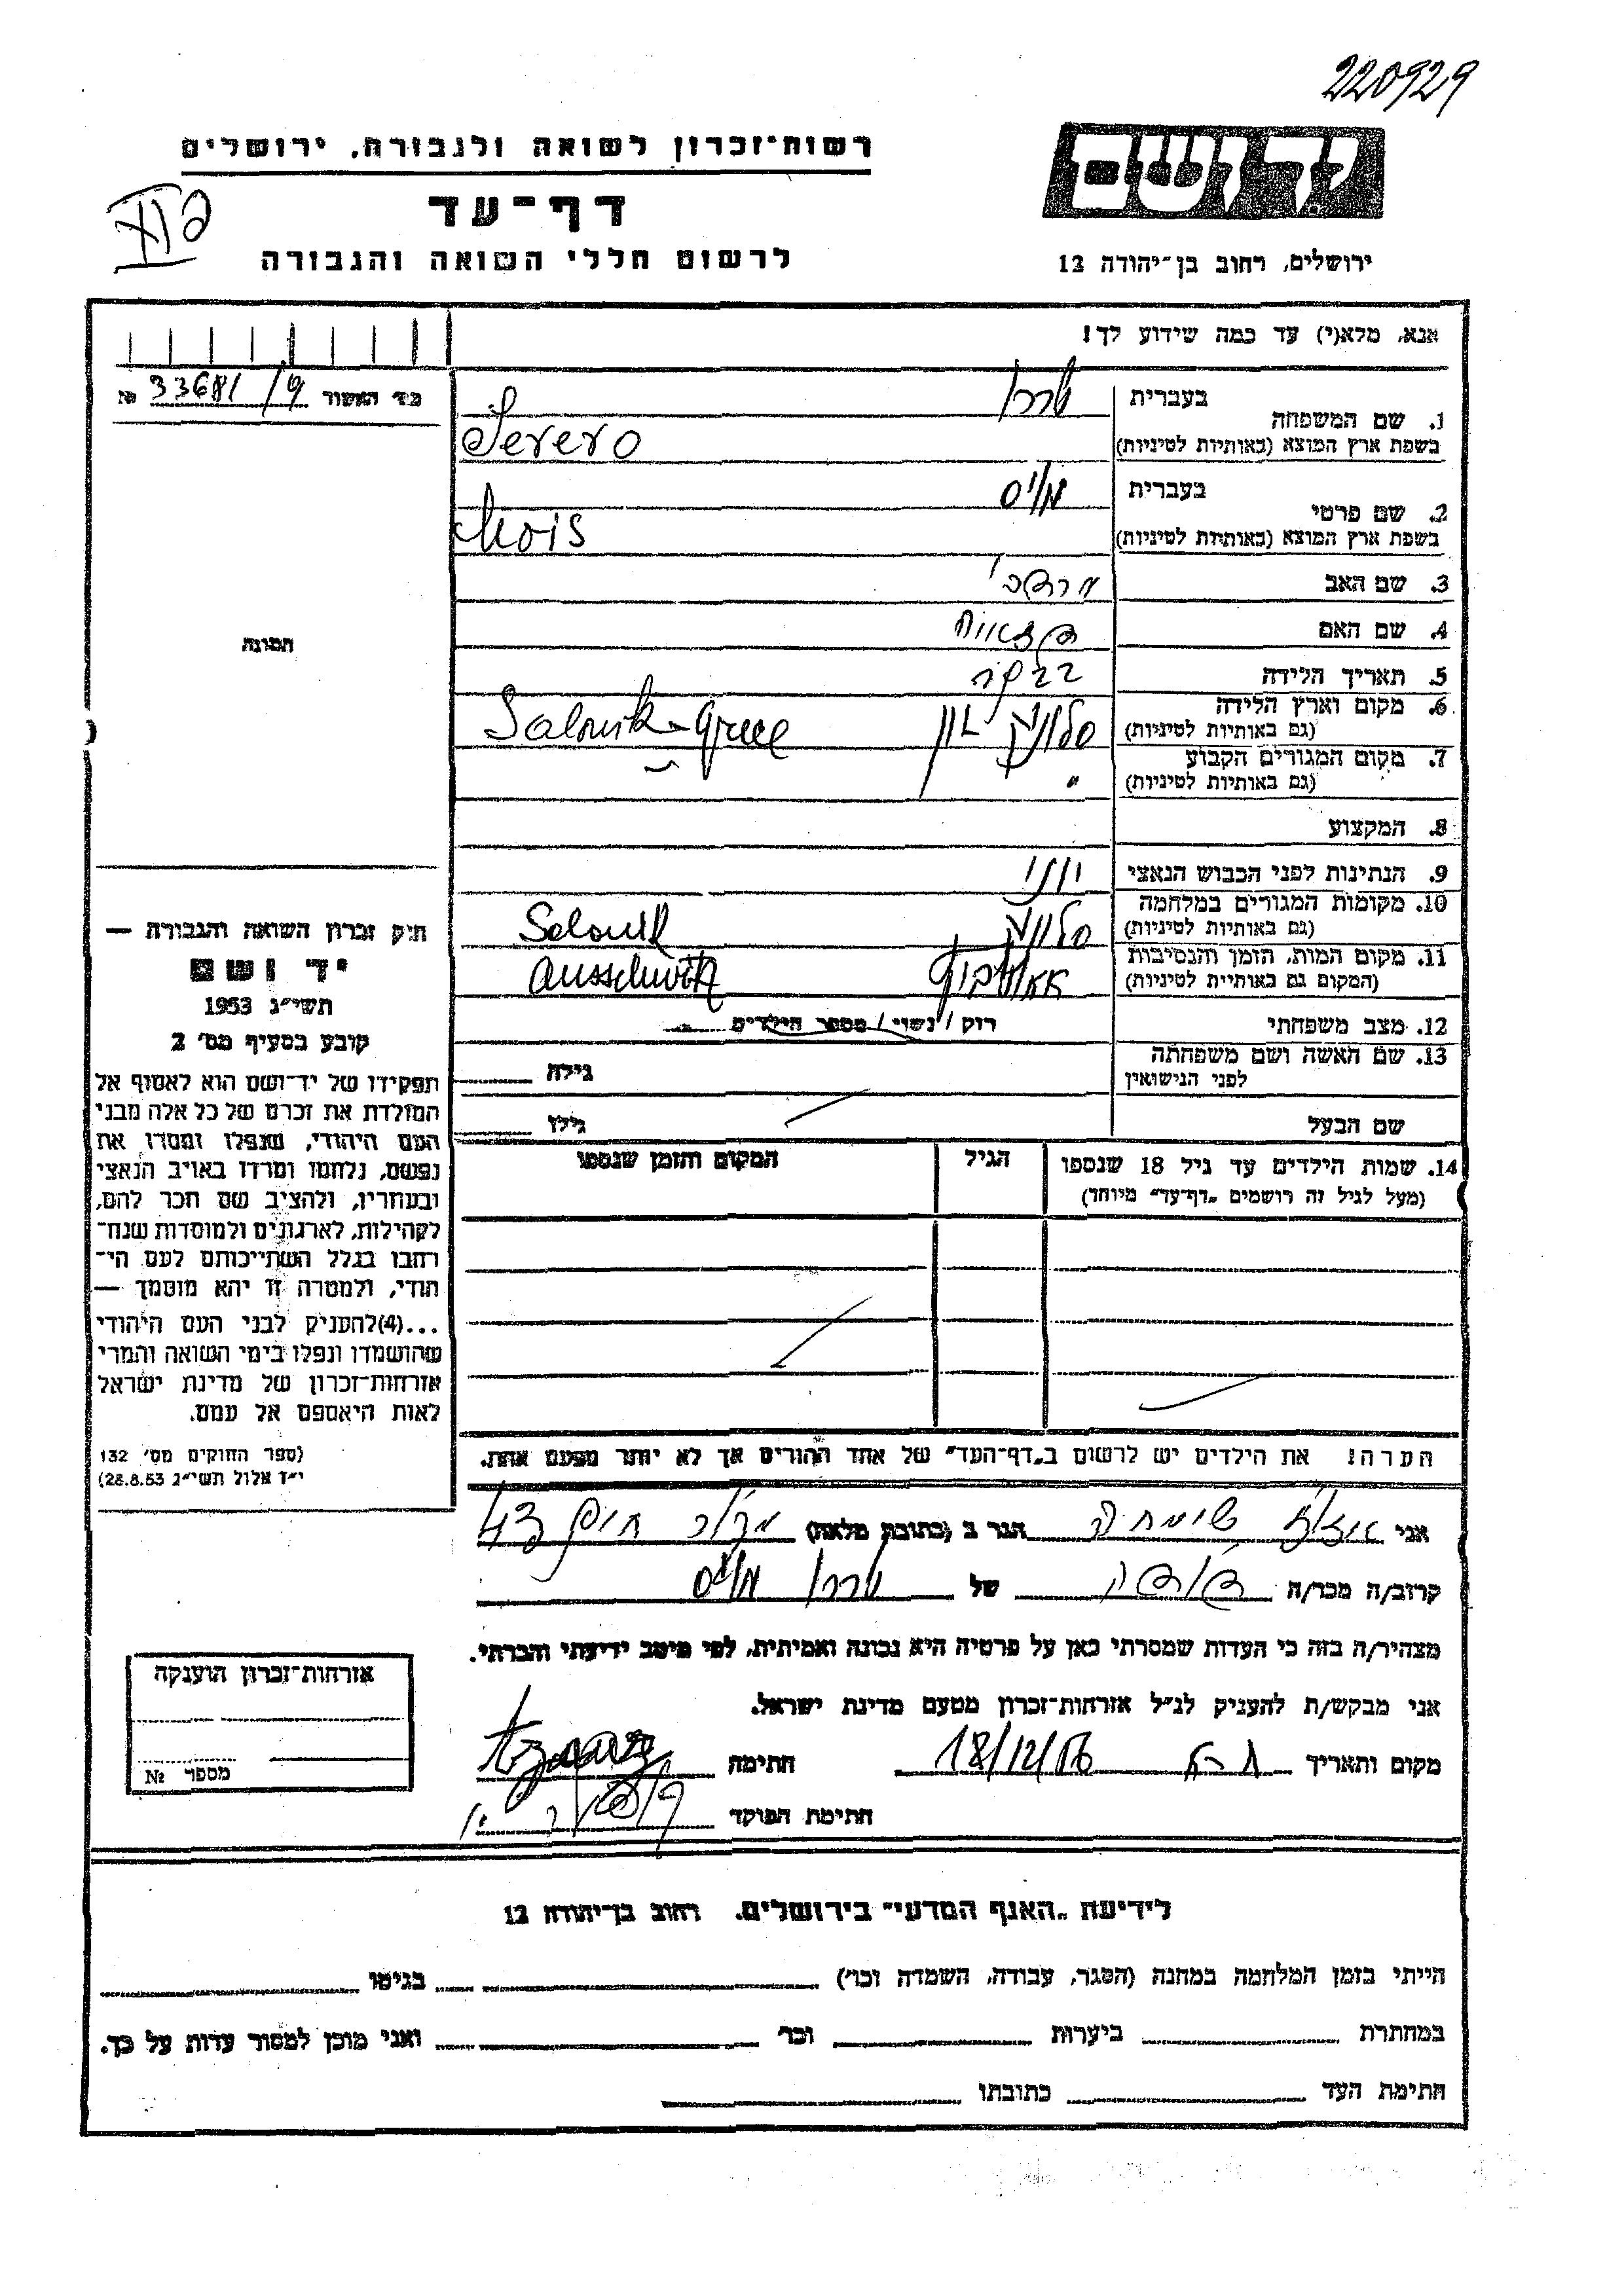 220929
רשות־זכרון לשואה ולגבורה, ירושלים
יד ושם
דף־עד
לרשום חללי השואה והגבורה
ירושלים, רחוב בן־יהודה 12
אנא, מלא(י) עד כמה שידוע לך!
כד האשור № 33681/
1. שם המשפחה
בעברית
בשפת ארץ המוצא (באותיות לטיניות) Severo
2. שם פרטי
בעברית מויס
בשפת ארץ המוצא (באותיות לטיניות) Mois
3. שם האב מרדכי
4. שם האם
5. תאריך הלידה
6. מקום וארץ הלידה סלוניקי יון
(גם באותיות לטיניות) Salonik-Greece
7. מקום המגורים הקבוע "
(גם באותיות לטיניות)
8. המקצוע
9. הנתינות לפני הכבוש הנאצי יוני
10. מקומות המגורים במלחמה סלוניקי
(גם באותיות לטיניות) Salonik
11. מקום המות, הזמן והנסיבות
(המקום גם באותיות לטיניות) Ausschwitz
12. מצב משפחתי רוק / נשוי / מספר הילדים
13. שם האשה ושם משפחתה
לפני הנישואין
גילה
שם הבעל
גילו
14. שמות הילדים עד גיל 18 שנספו
(מעל לגיל זה רושמים „דף־עד" מיוחד)
הגיל
המקום והזמן שנספו
הערה! את הילדים יש לרשום ב„דף־העד" של אחד ההורים אך לא יותר מפעם אחת.
תמונה
חיק זכרון השואה והגבורה —
יד ושם
תשי"ג 1953
קובע בסעיף מס' 2
תפקידו של יד־ושם הוא לאסוף אל
המולדת את זכרם של כל אלה מבני
העם היהודי, שנפלו ומסרו את
נפשם, נלחמו ומרדו באויב הנאצי
ובעוזריו, ולהציב שם וזכר להם,
לקהילות, לארגונים ולמוסדות שנח־
רבו בגלל השתייכותם לעם הי־
הודי, ולמטרה זו יהא מוסמך —
...(4)להעניק לבני העם היהודי
שהושמדו ונפלו בימי השואה והמרי
אזרחות־זכרון של מדינת ישראל
לאות היאספם אל עמם.
(ספר החוקים מס' 132
י"ז אלול תשי"ג 28.8.53)
אני שימחה הגר ב (כתובת מלאה)
קרוב/ה מכר/ה דודה של מויס
מצהיר/ה בזה כי העדות שמסרתי כאן על פרטיה היא נכונה ואמיתית, לפי מיטב ידיעתי והכרתי.
אני מבקש/ת להעניק לנ"ל אזרחות־זכרון מטעם מדינת ישראל.
מקום ותאריך 18/12/ חתימה
חתימת הפוקד
אזרחות־זכרון הוענקה
מספר №
לידיעת „האגף המדעי" בירושלים, רחוב בן־יהודה 12
הייתי בזמן המלחמה במחנה (הסגר, עבודה, השמדה וכו') בגיטו
במחתרת ביערות וכו' ואני מוכן למסור עדות על כך.
חתימת העד כתובתו